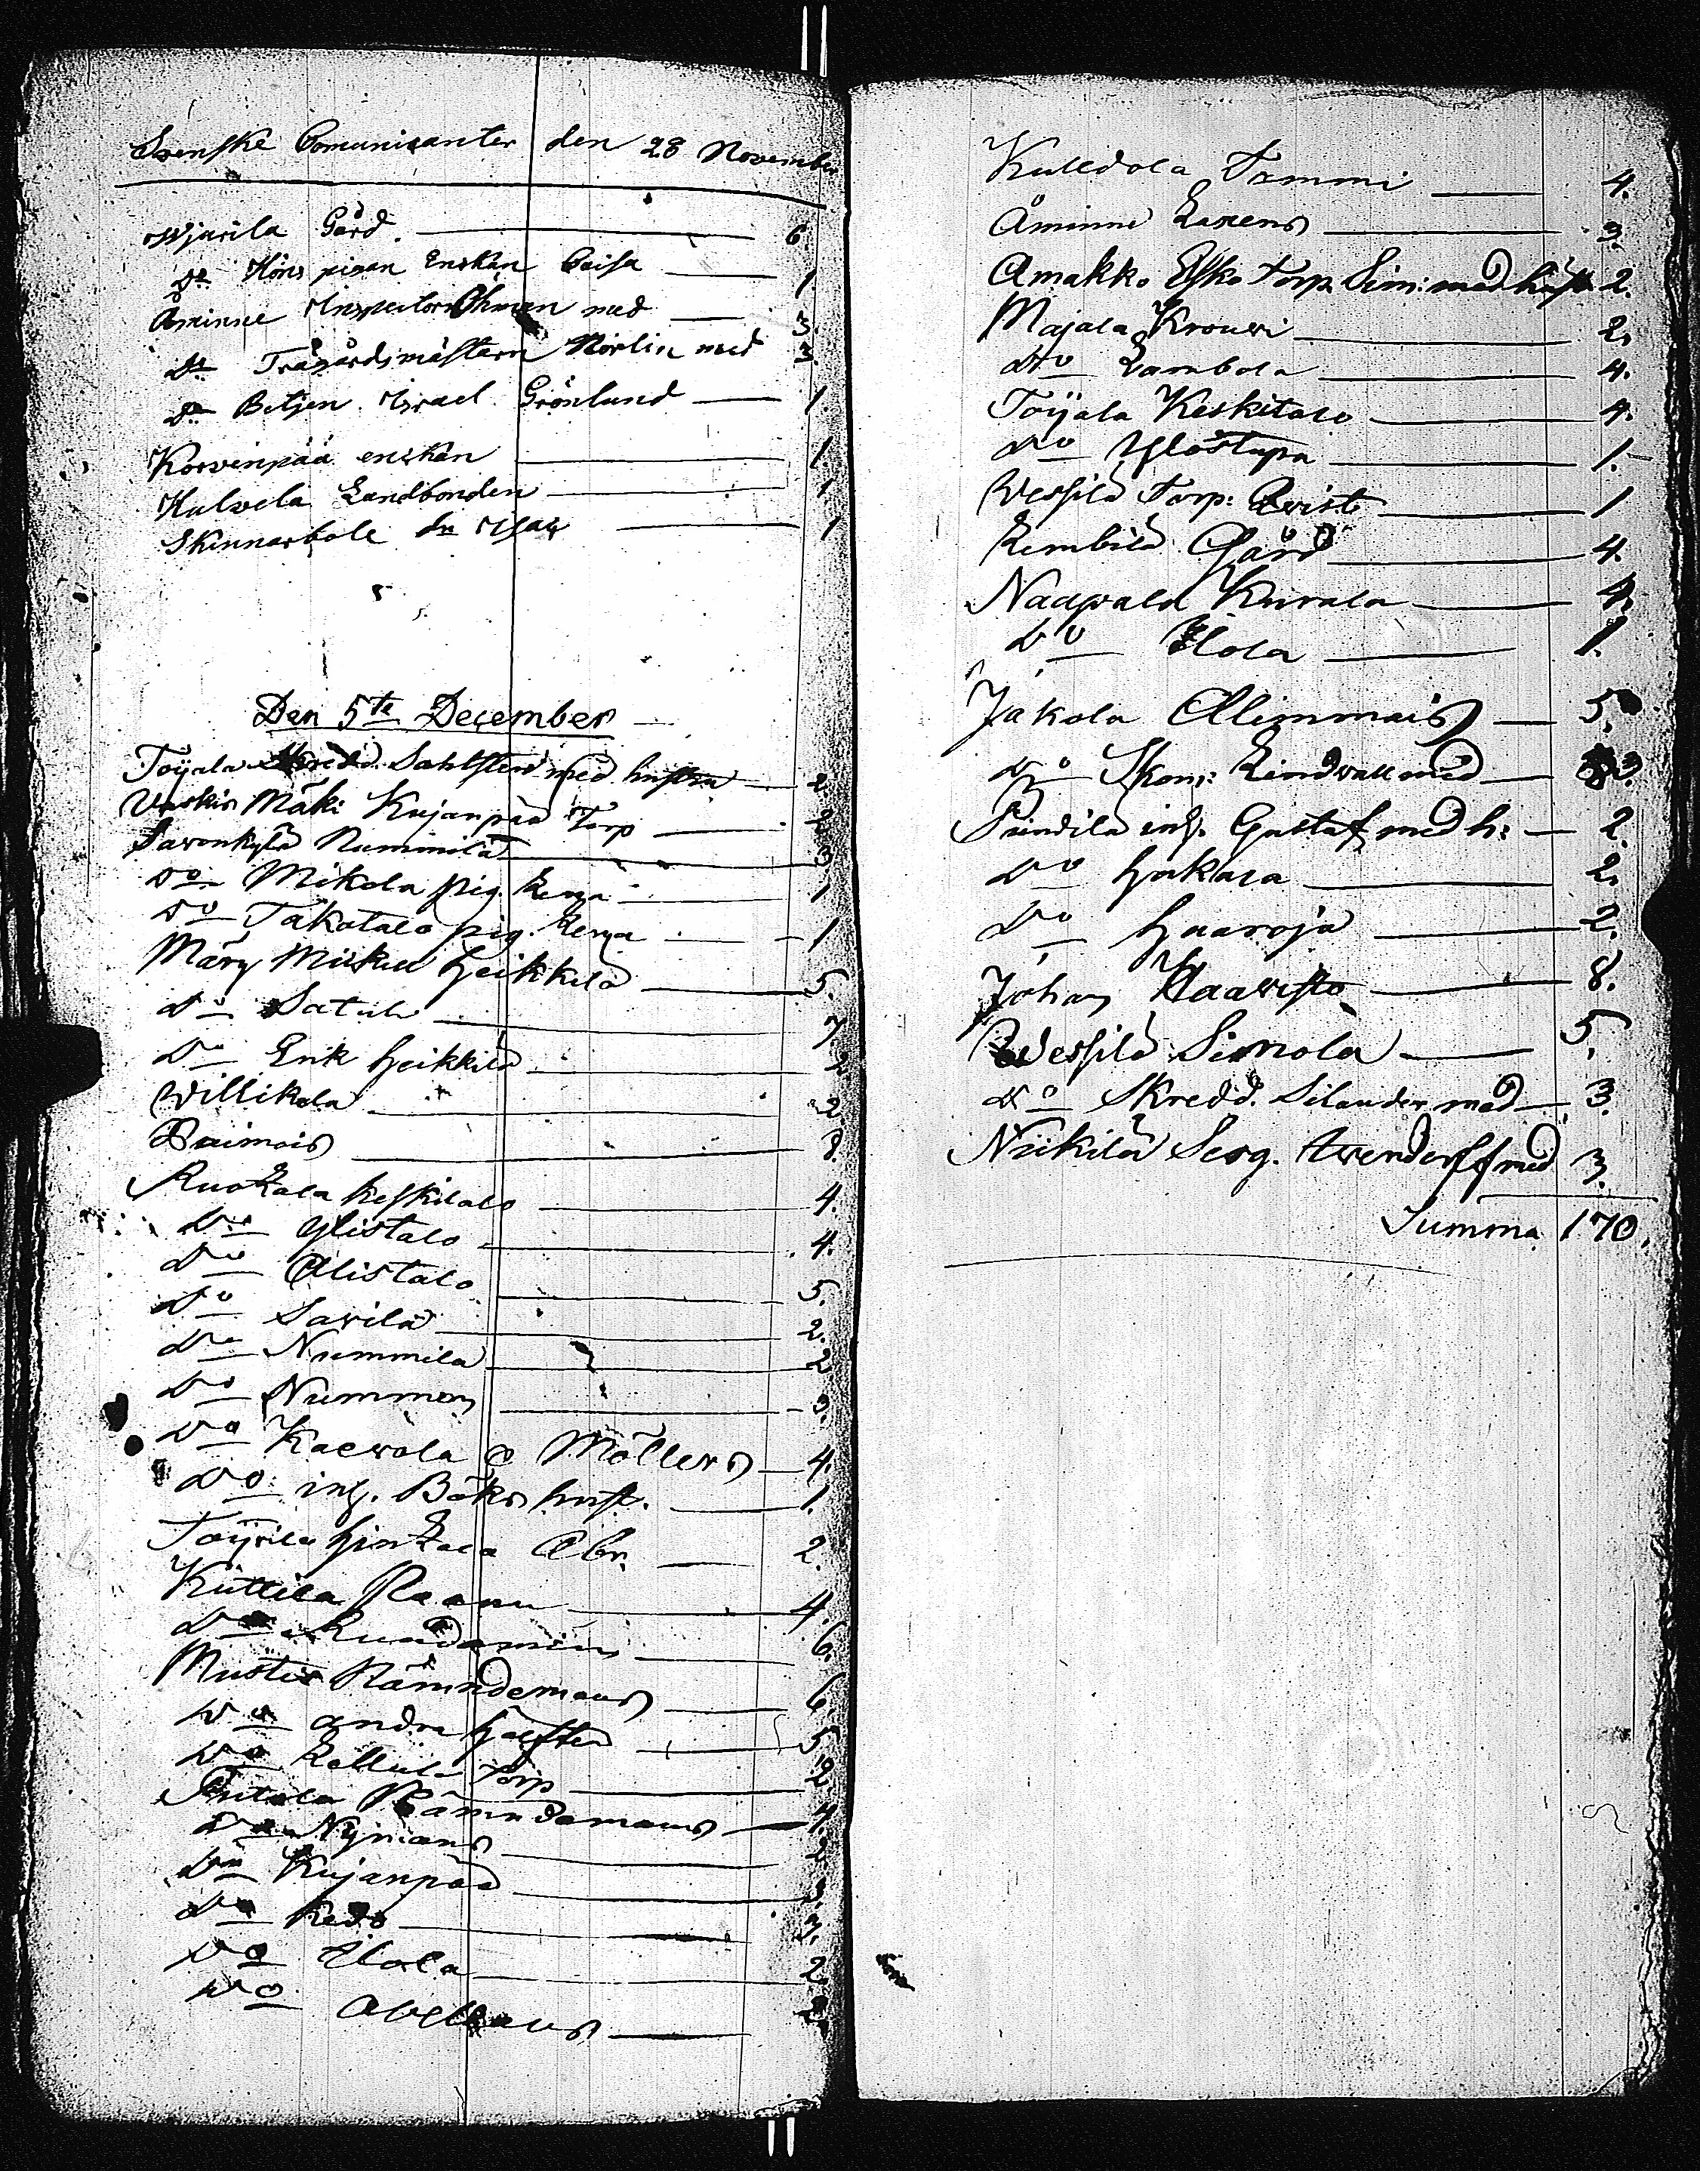 Svenske Comunicanter den 28 November
Wjurila Gård 6
Do Höns pigan Enkan Caisa 1.
Åminne Inspectorn Öhman med 3.
Do Trägårdsmästarn Norlin med 3.
Do Betjen. Israel Grönlund 1.
Korvenpää enkan 1.
Kulvela Landbonden 1
Skinnarbole dn Isac 1
Den 5te December
Toijala Skredd. Sahlsten med hustru 2
Vaskio Mäki Kujanpää Torp 2
Savonkylä Nummila 3
Do Mikola pig. Lena 1
Do Takatalo pig. Lena 1
Märy Mickel Heikkilä 5.
Do Satula 7
Do Erik Heikkilä 2
Villikala 2
Paimois 8.
Ruokala Keskitalo 4.
Do Ylistalo 4.
Do Alistalo 5.
Do Savila 2.
Do Nummila 2
Do Nummen 3.
Do Kaevola Möllers 4.
Do inh. Böks hust. 1.
Toijvila Abr. 2.
Kuttila Raanu 4.
Do 6.
Mustio Nämndemans 6
Do andra hälften 5
Do Torp 2.
Nämndemans 4.
Do Nymans 2
Do Kujanpää 3.
Do Kedo 3.
Do Ilola 2.
Do
Kulldola Tommi 4.
Åminne Laxens 3.
Amakko Esko Torp. Sim: med hust. 2.
Majala Krouvi 2.
Do Lambola 4.
Toijala Keskitalo 4.
Do Ylöstupa 1.
Vessilä Torp: Qvist 1
Rembilä Gård 4.
Naapala Kurala 4.
Do Ilola 1.
Jakola Alimmais 5.
Do Skom: Lindvall med 3
Prindilä inh. Gustaf med h: 2.
Do Hakala 2.
Do Haaroja 2.
Johan Haavisto 8.
Vessilä Simola 5.
Do Skredd. Silander med 3.
Niikilä Serg. Avenderff med 3.
Summa 170.